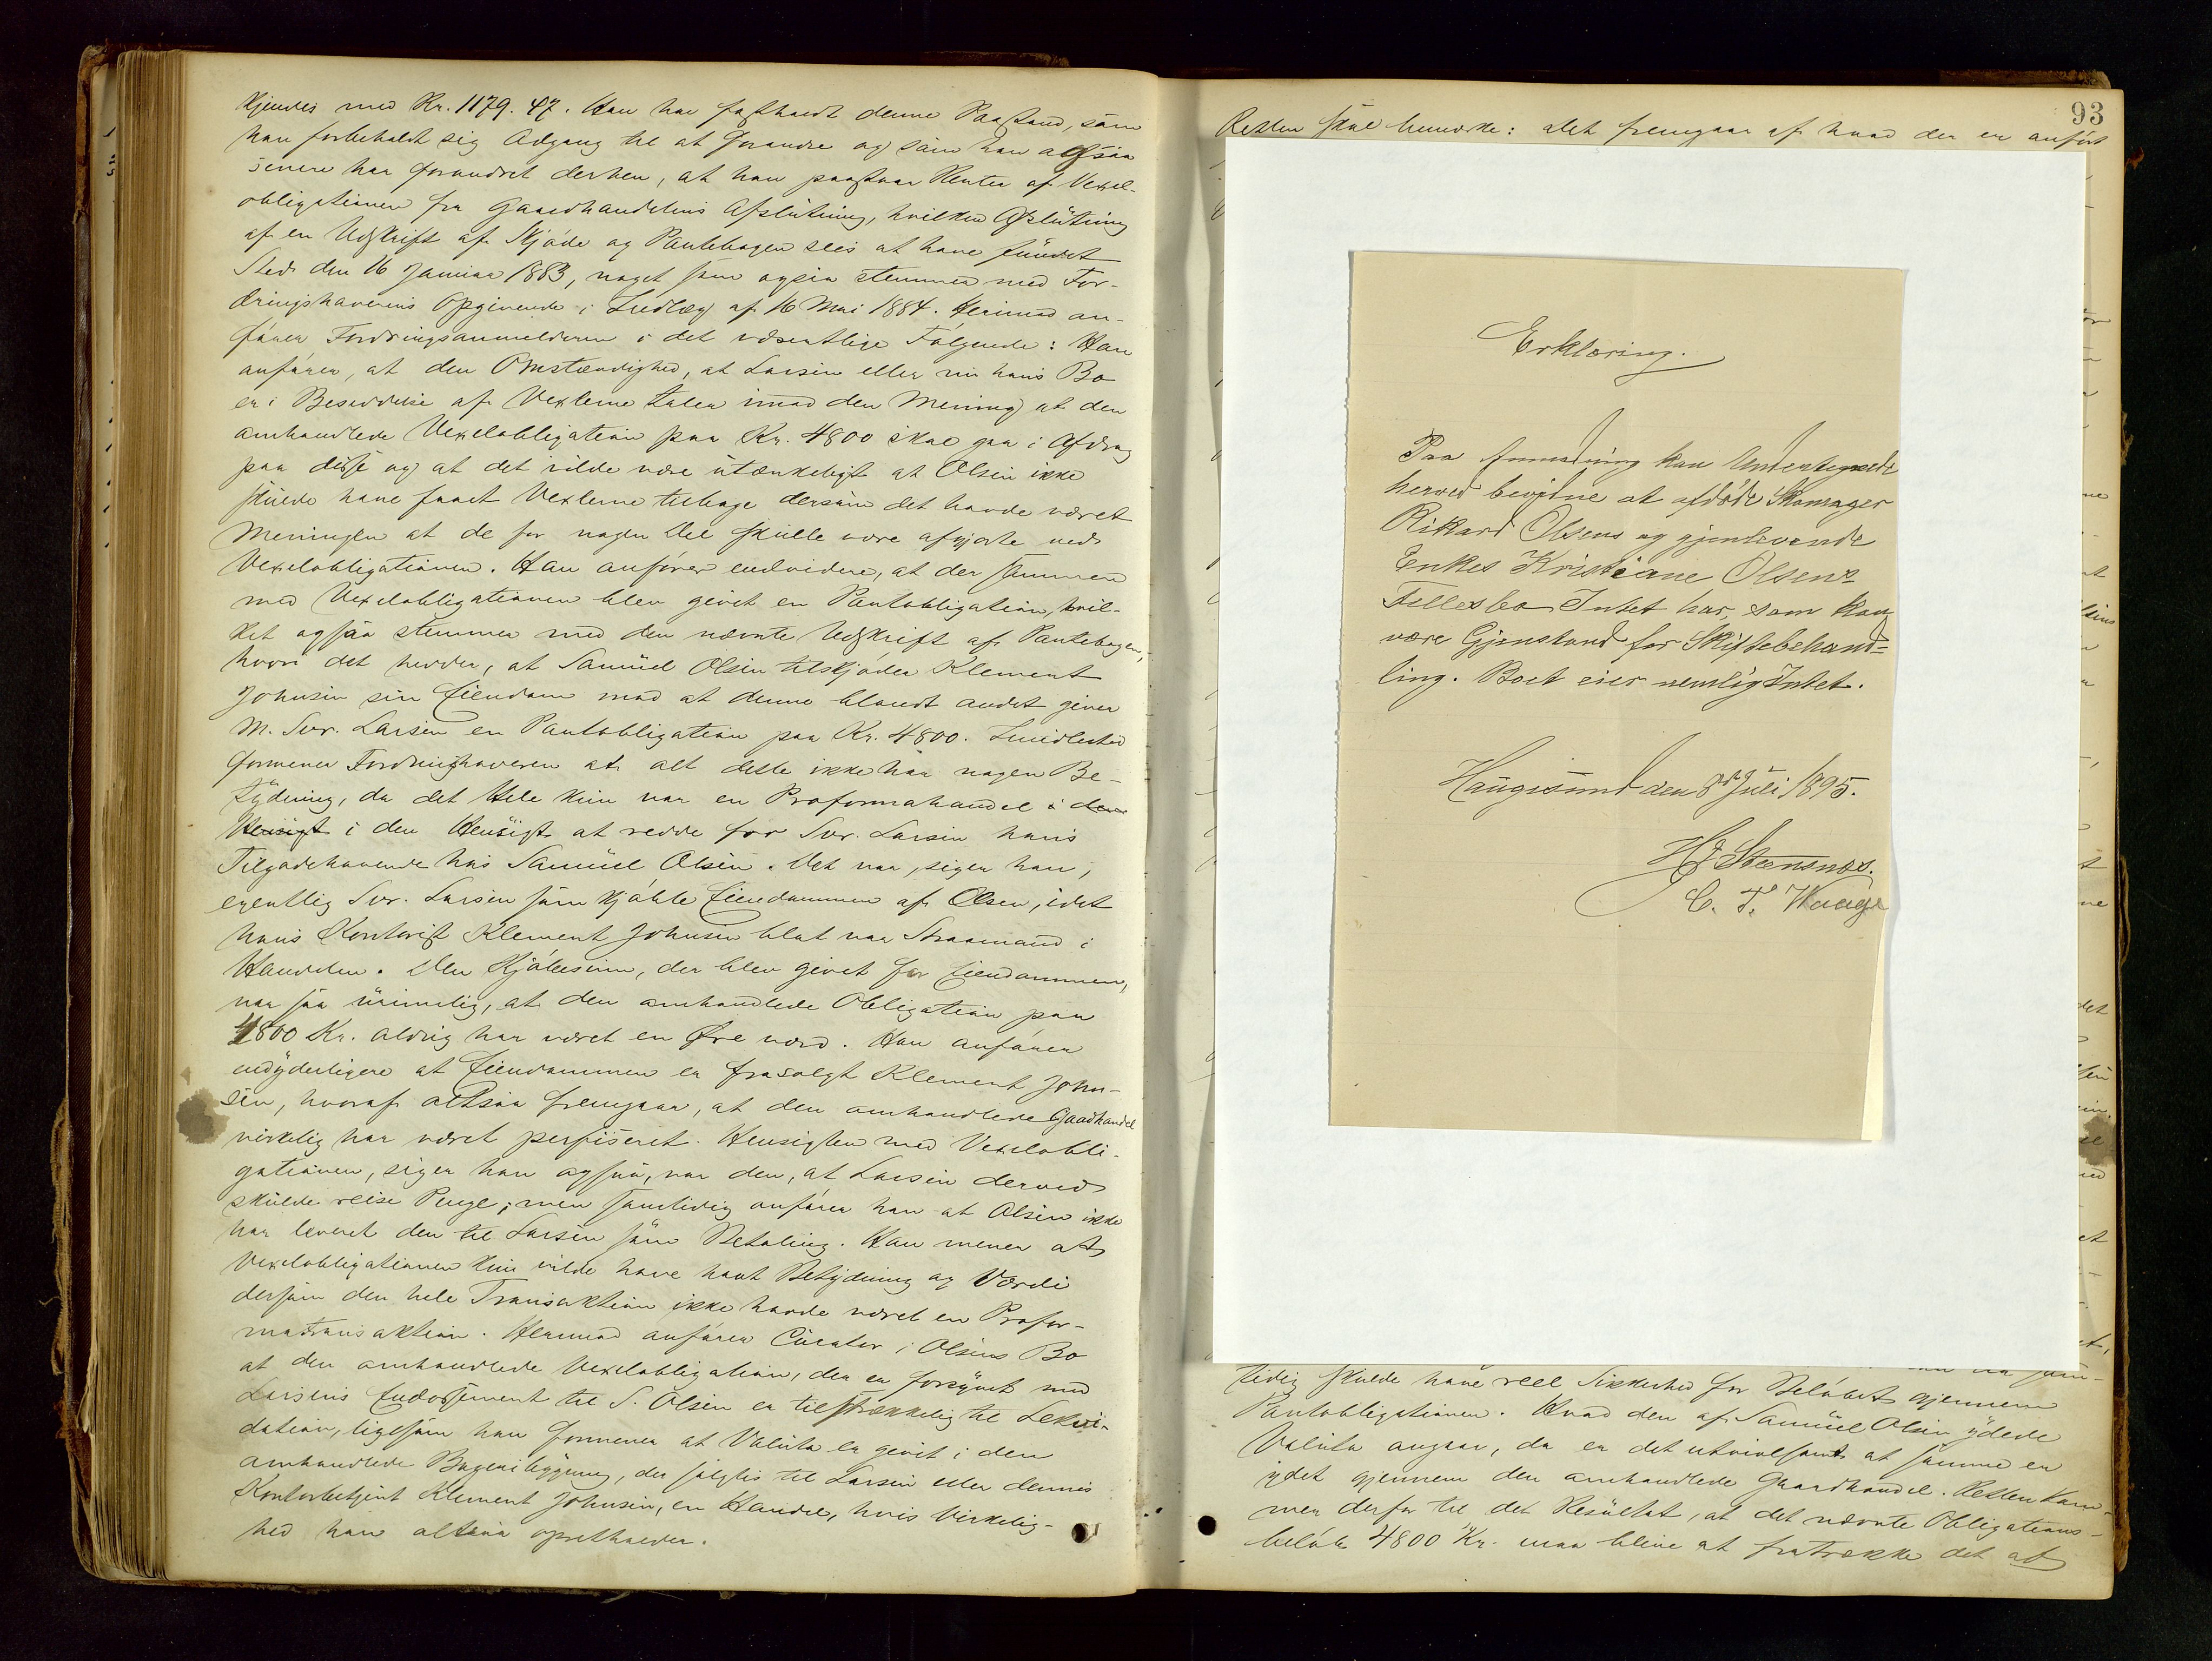 kjendes med Kr. 1179. 47. Han har fastholdt denne Paastand, som
han forbeholdt sig Adgang til at forandre og som han ogsaa
senere har forandret derhen, at han paastaar Renter af Vexel-
obligationen fra Gaardhandelens Afslutning, hvilken Afslutning
af en Udskrift af Skjøde og Pantebogen sees at have fundet
Sted den 16 Januar 1883, noget som ogsaa stemmer med For-
dringshaverens Opgivende i Indlæg af 16 Mai 1884. Herimod an-
fører Fordringsanmelderen i det væsentlige Følgende: Han
anfører, at den Omstændighed, at Larsen eller nu hans Bo
er i Besiddelse af Vexlerne taler imod den Mening at den
omhandlede Vexelobligation paa Kr. 4800 skal gaa i Afdrag
paa disse og at det vilde være utænkeligt at Olsen ikke
skulde have faaet Vexlerne tilbage dersom det havde været
Meningen at de for nogen Del skulle være afgjorte ved
Vexelobligationen. Han anfører endvidere, at der sammen
med Vexelobligationen blev givet en Pantobligation, hvil-
ket ogsaa stemmer med den nævnte Udskrift af Pantebogen,
hvori det hedder, at Samuel Olsen tilskjøder Klement
Johnsen sin Eiendom mod at denne blandt andet giver
M. Svr. Larsen en Pantobligation paa Kr. 4800. Imidlertid
formener Fordringshaveren at alt dette ikke har nogen Be-
tydning, da det Hele kun var en Proformahandel i den
Hensigt i den Hensigt at redde for Svr. Larsen hans
Tilgodehavende hos Samuel Olsen. Det var, siger han,
egentlig Svr. Larsen som kjøbte Eiendommen af Olsen, idet
hans Kontorist Klement Johnsen blot var Straamand i
Handelen. Den Kjøbesum, der blev givet for Eiendommen,
var saa urimelig, at den omhandlede Obligation paa
4800 Kr. aldrig har været en Øre værd. Han anfører
endyderligere at Eiendommen er frasolgt Klement John-
sen, hvoraf altsaa fremgaar, at den omhandlede Gaardhandel
virkelig har været perfiseret. Hensigten med Vexelobli-
gationen, siger han ogsaa, var den, at Larsen derved
skulde reise Penge; men samtidig anfører han at Olsen ikke
har leveret den til Larsen som Betaling. Han mener at
Vexelobligationen kun vilde have havt Betydning og Værdi
dersom den hele Transaktion ikke havde været en Profor-
matransaktion. Hermod anfører Curator i Olsens Bo
at den omhandlede Vexelobligation, der er forsynet med
Larsens Endossement til S. Olsen er tilstrækkelig til Lekvi-
dation, ligesom han formener at Valuta er givet i den
omhandlede Bageribygning, der solgtes til Larsen eller dennes
Kontorbetjent Klement Johnsen, en Handel, hvis Virkelig-
hed han altsaa opretholder.
93
Retten skal bemærke: Det fremgaar af hvad der er anført
Erklæring.
Paa Anmodning kan Undertegnede
herved bevidne at afdøde Skomager
Rikard Olsens og gjenlevende
Enkes Kristiane Olsens
Fællesbo Intet har, som kan
være Gjenstand for Skiftebehand=
ling. Boet eier nemlig Intet.
Haugesund den 8de Juli 1895.
Stensnæs.
C. T. Waage
tidig skulde have reel Sikkerhed for Beløbet gjennem
Pantobligationen. Hvad den af Samuel Olsen ydede
Valuta angaar, da er det utvivlsomt at samme er
ydet gjennem den omhandlede Gaardhandel. Retten kom-
mer derfor til det Resultat, at det nævnte Obligations-
beløb 4800 Kr. maa blive at fratrække det af